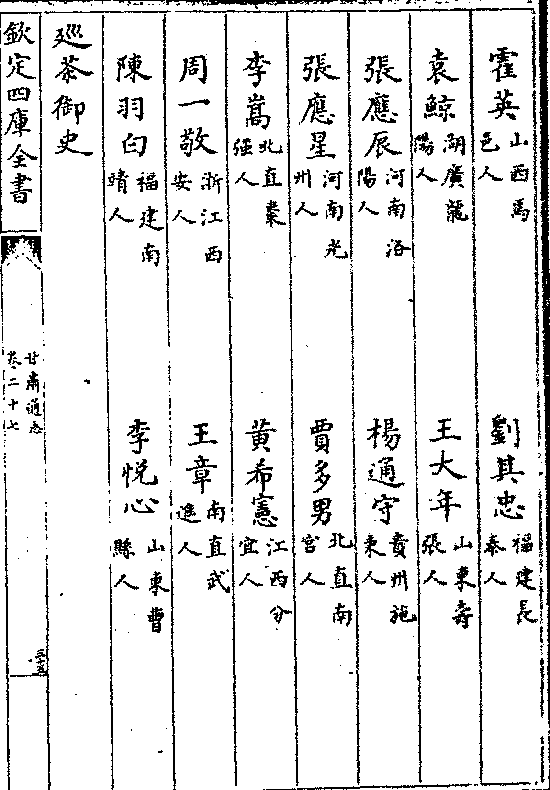 霍英山西馬邑人 劉其忠福建長泰人
袁鯨湖廣龍陽人 王大年山東壽張人
張應辰河南洛陽人 楊通守貴州施秉人
張應星河南光州人 賈多男北直南宮人
李嵩北直棗强人 黃希憲江西分宜人
周一敬浙江西安人 王章南直武進人
陳羽白福建南晴人 李悅心山東曹縣人
廵茶御史
欽定四庫全書
甘肅通志
卷二十七
三十五